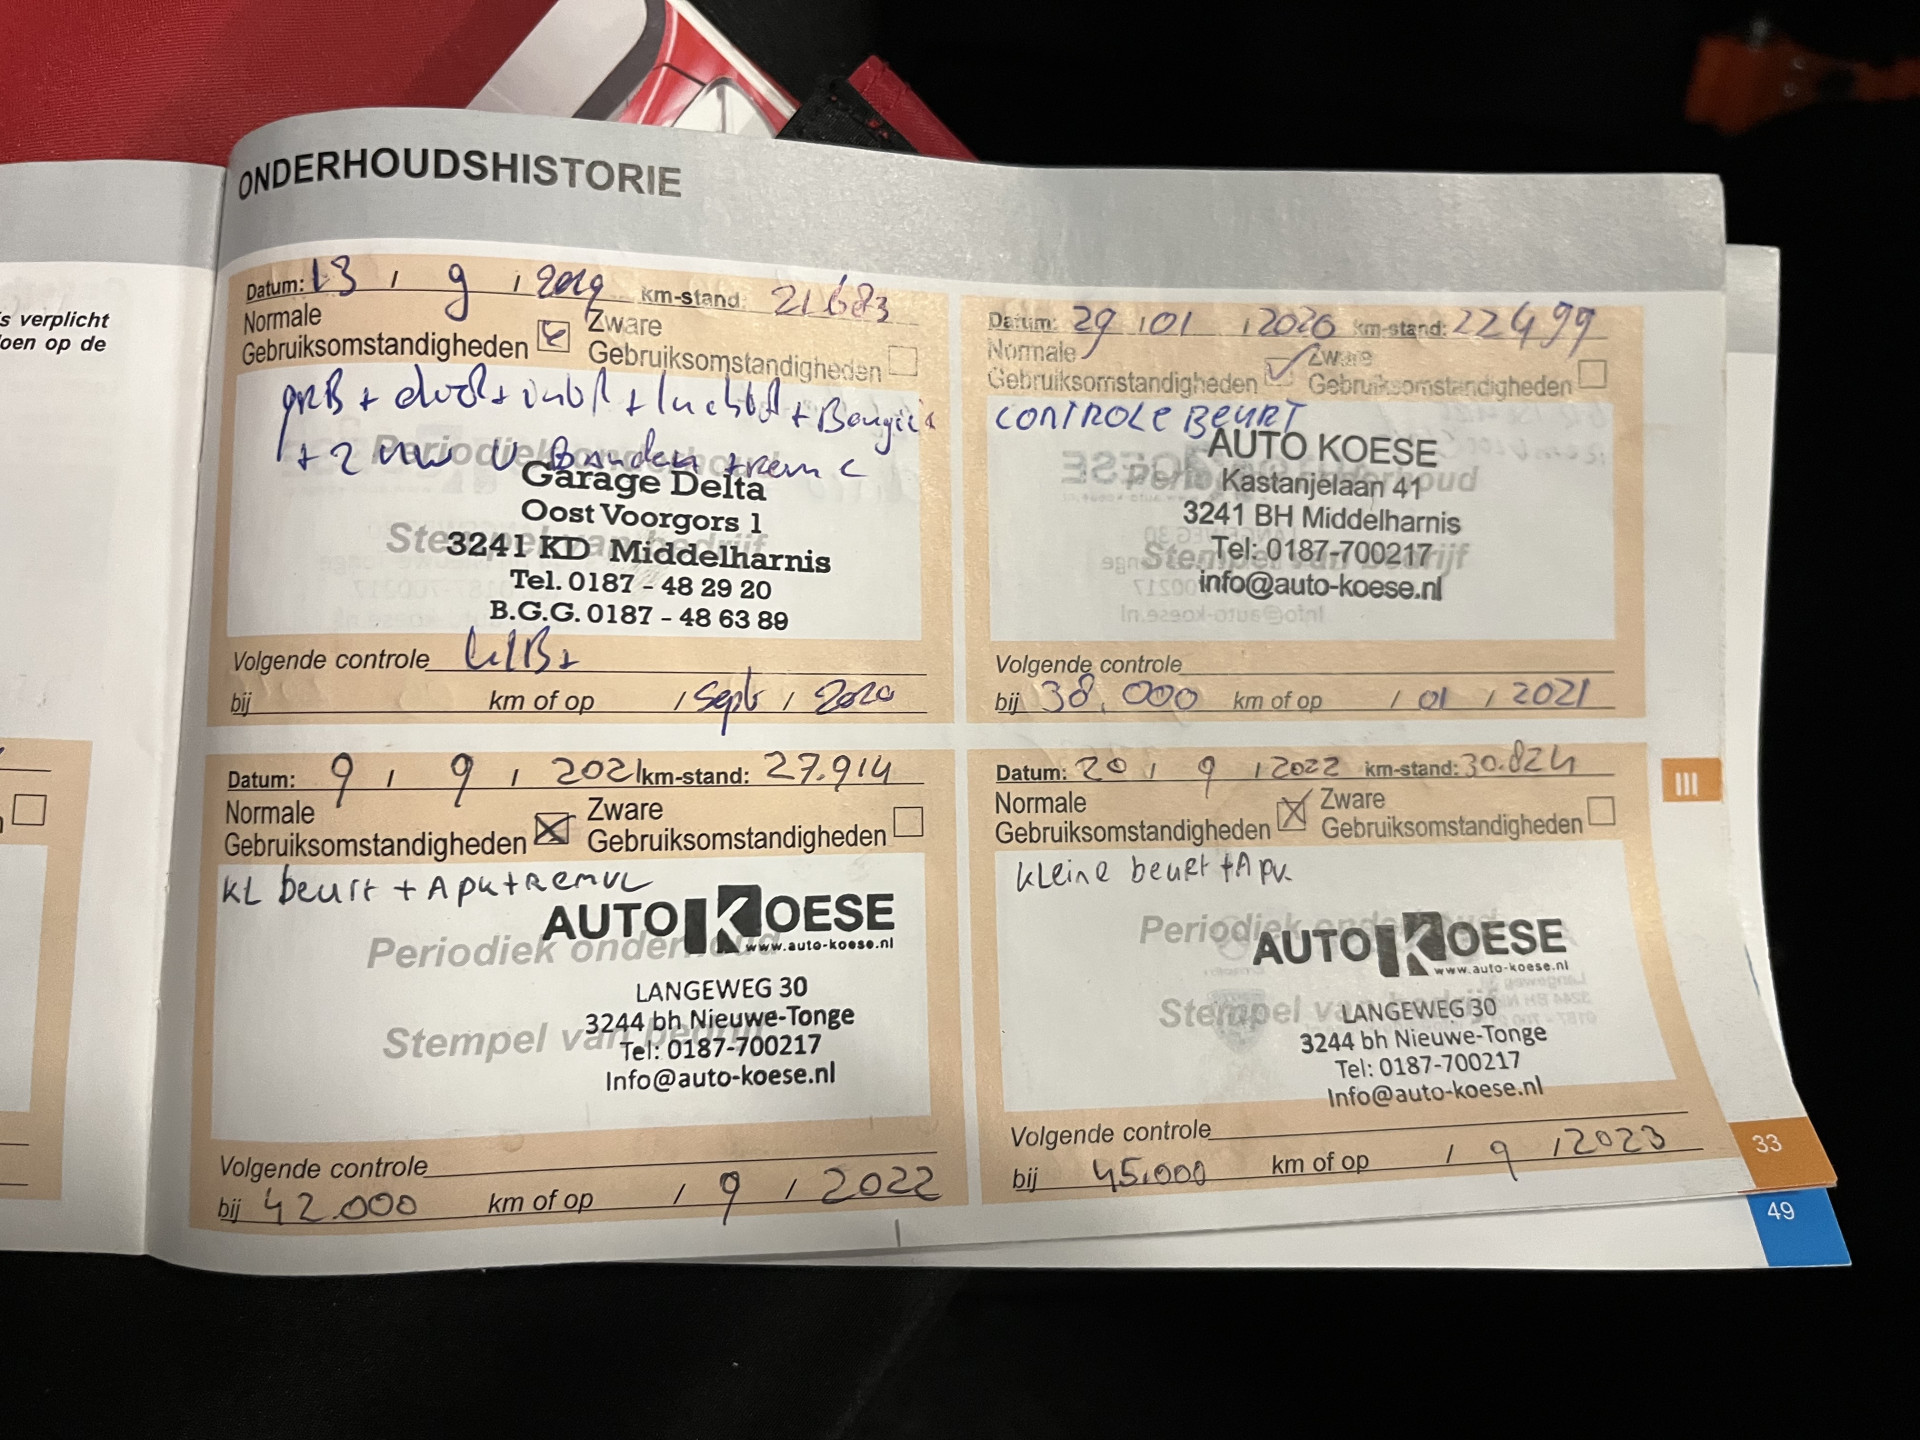 s verplicht
oen op de
ONDERHOUDSHISTORIE
Datum: 13 / 9 / 2019 km-stand: 21683
Normale Gebruiksomstandigheden Zware Gebruiksomstandigheden
+ + + + Bougies
+ 2 nw V Banden + rem
Periodiek onderhoud
Stempel van bedrijf
Garage Delta
Oost Voorgors 1
3241 KD Middelharnis
Tel. 0187 - 48 29 20
B.G.G. 0187 - 48 63 89
Volgende controle
bij km of op / Sept / 2020
Datum: 29 / 01 / 2020 km-stand: 22499
Normale Gebruiksomstandigheden Zware Gebruiksomstandigheden
CONTROLE BEURT
Periodiek onderhoud
Stempel van bedrijf
AUTO KOESE
Kastanjelaan 41
3241 BH Middelharnis
Tel: 0187-700217
info@auto-koese.nl
Volgende controle
bij 38.000 km of op / 01 / 2021
Datum: 9 / 9 / 2021 km-stand: 27.914
Normale Gebruiksomstandigheden Zware Gebruiksomstandigheden
KL beurt + Apk + Remvl
Periodiek onderhoud
Stempel van bedrijf
AUTO KOESE
www.auto-koese.nl
LANGEWEG 30
3244 bh Nieuwe-Tonge
Tel: 0187-700217
Info@auto-koese.nl
Volgende controle
bij 42.000 km of op / 9 / 2022
Datum: 20 / 9 / 2022 km-stand: 30.824
Normale Gebruiksomstandigheden Zware Gebruiksomstandigheden
kleine beurt + Apk
Periodiek onderhoud
Stempel van bedrijf
AUTO KOESE
www.auto-koese.nl
LANGEWEG 30
3244 bh Nieuwe-Tonge
Tel: 0187-700217
Info@auto-koese.nl
Volgende controle
bij 45.000 km of op / 9 / 2023
III
33
49